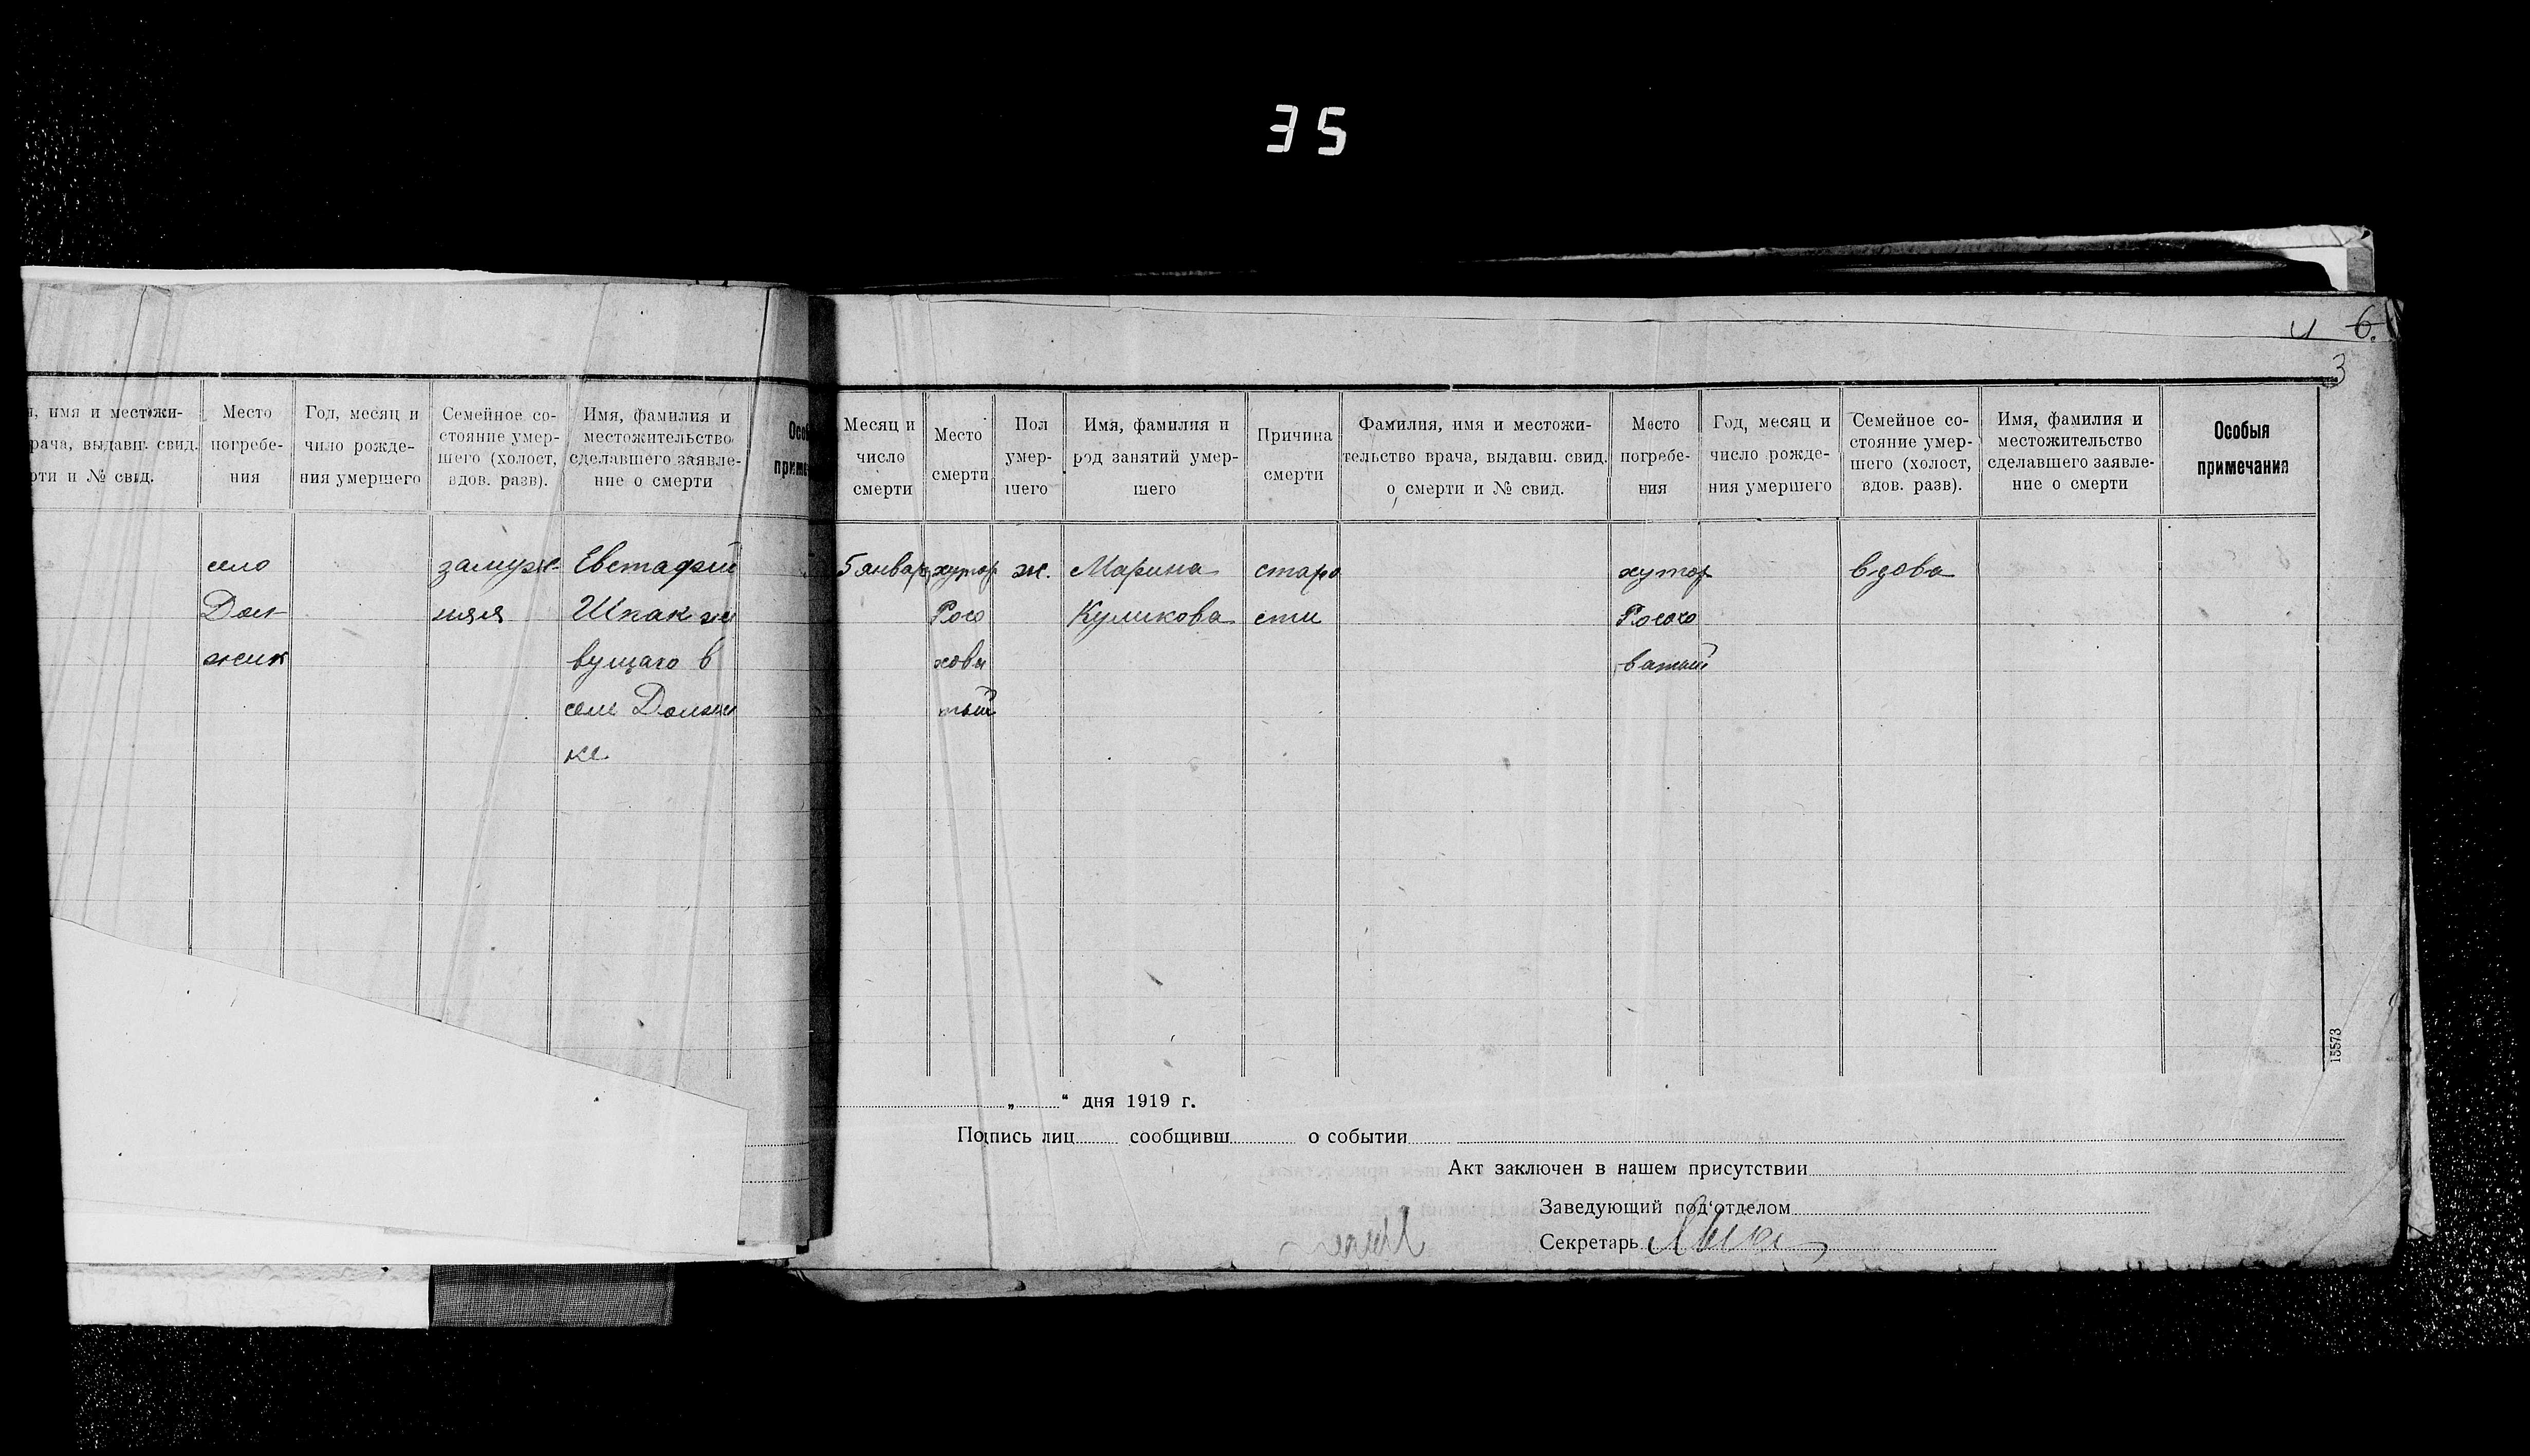 35
6.
3
, имя и местожи-
рача, выдавш. свид.
рти и № свид.
Место
погребе-
ния
Год, месяц и
число рожде-
ния умершего
Семейное со-
стояние умер-
шего (холост,
вдов. разв).
Имя, фамилия и
местожительство
сделавшего заявле-
ние о смерти
село
Дол-
жик
замуж-
няя
Евстафий
Шпак жи
вущаго в
селе Должи
ке
Месяц и
число
смерти
Место
смерти
Пол
умер-
шего
Имя, фамилия и
род занятий умер-
шего
Причина
смерти
Фамилия, имя и местожи-
тельство врача, выдавш. свид.
о смерти и № свид.
Место
погребе-
ния
Год, месяц и
число рожде-
ния умершего
Семейное со-
стояние умер-
шего (холост,
вдов. разв).
Имя, фамилия и
местожительство
сделавшего заявле-
ние о смерти
Особыя
примечания
5 января
хутор
Росо
хова
тый
ж.
Марина
Куликова
старо
сти
хутор
Росохо
ватый
вдова
15573
„ “ дня 1919 г.
Подпись лиц сообщивш о событии
Акт заключен в нашем присутствии
Заведующий под'отделом
Секретарь